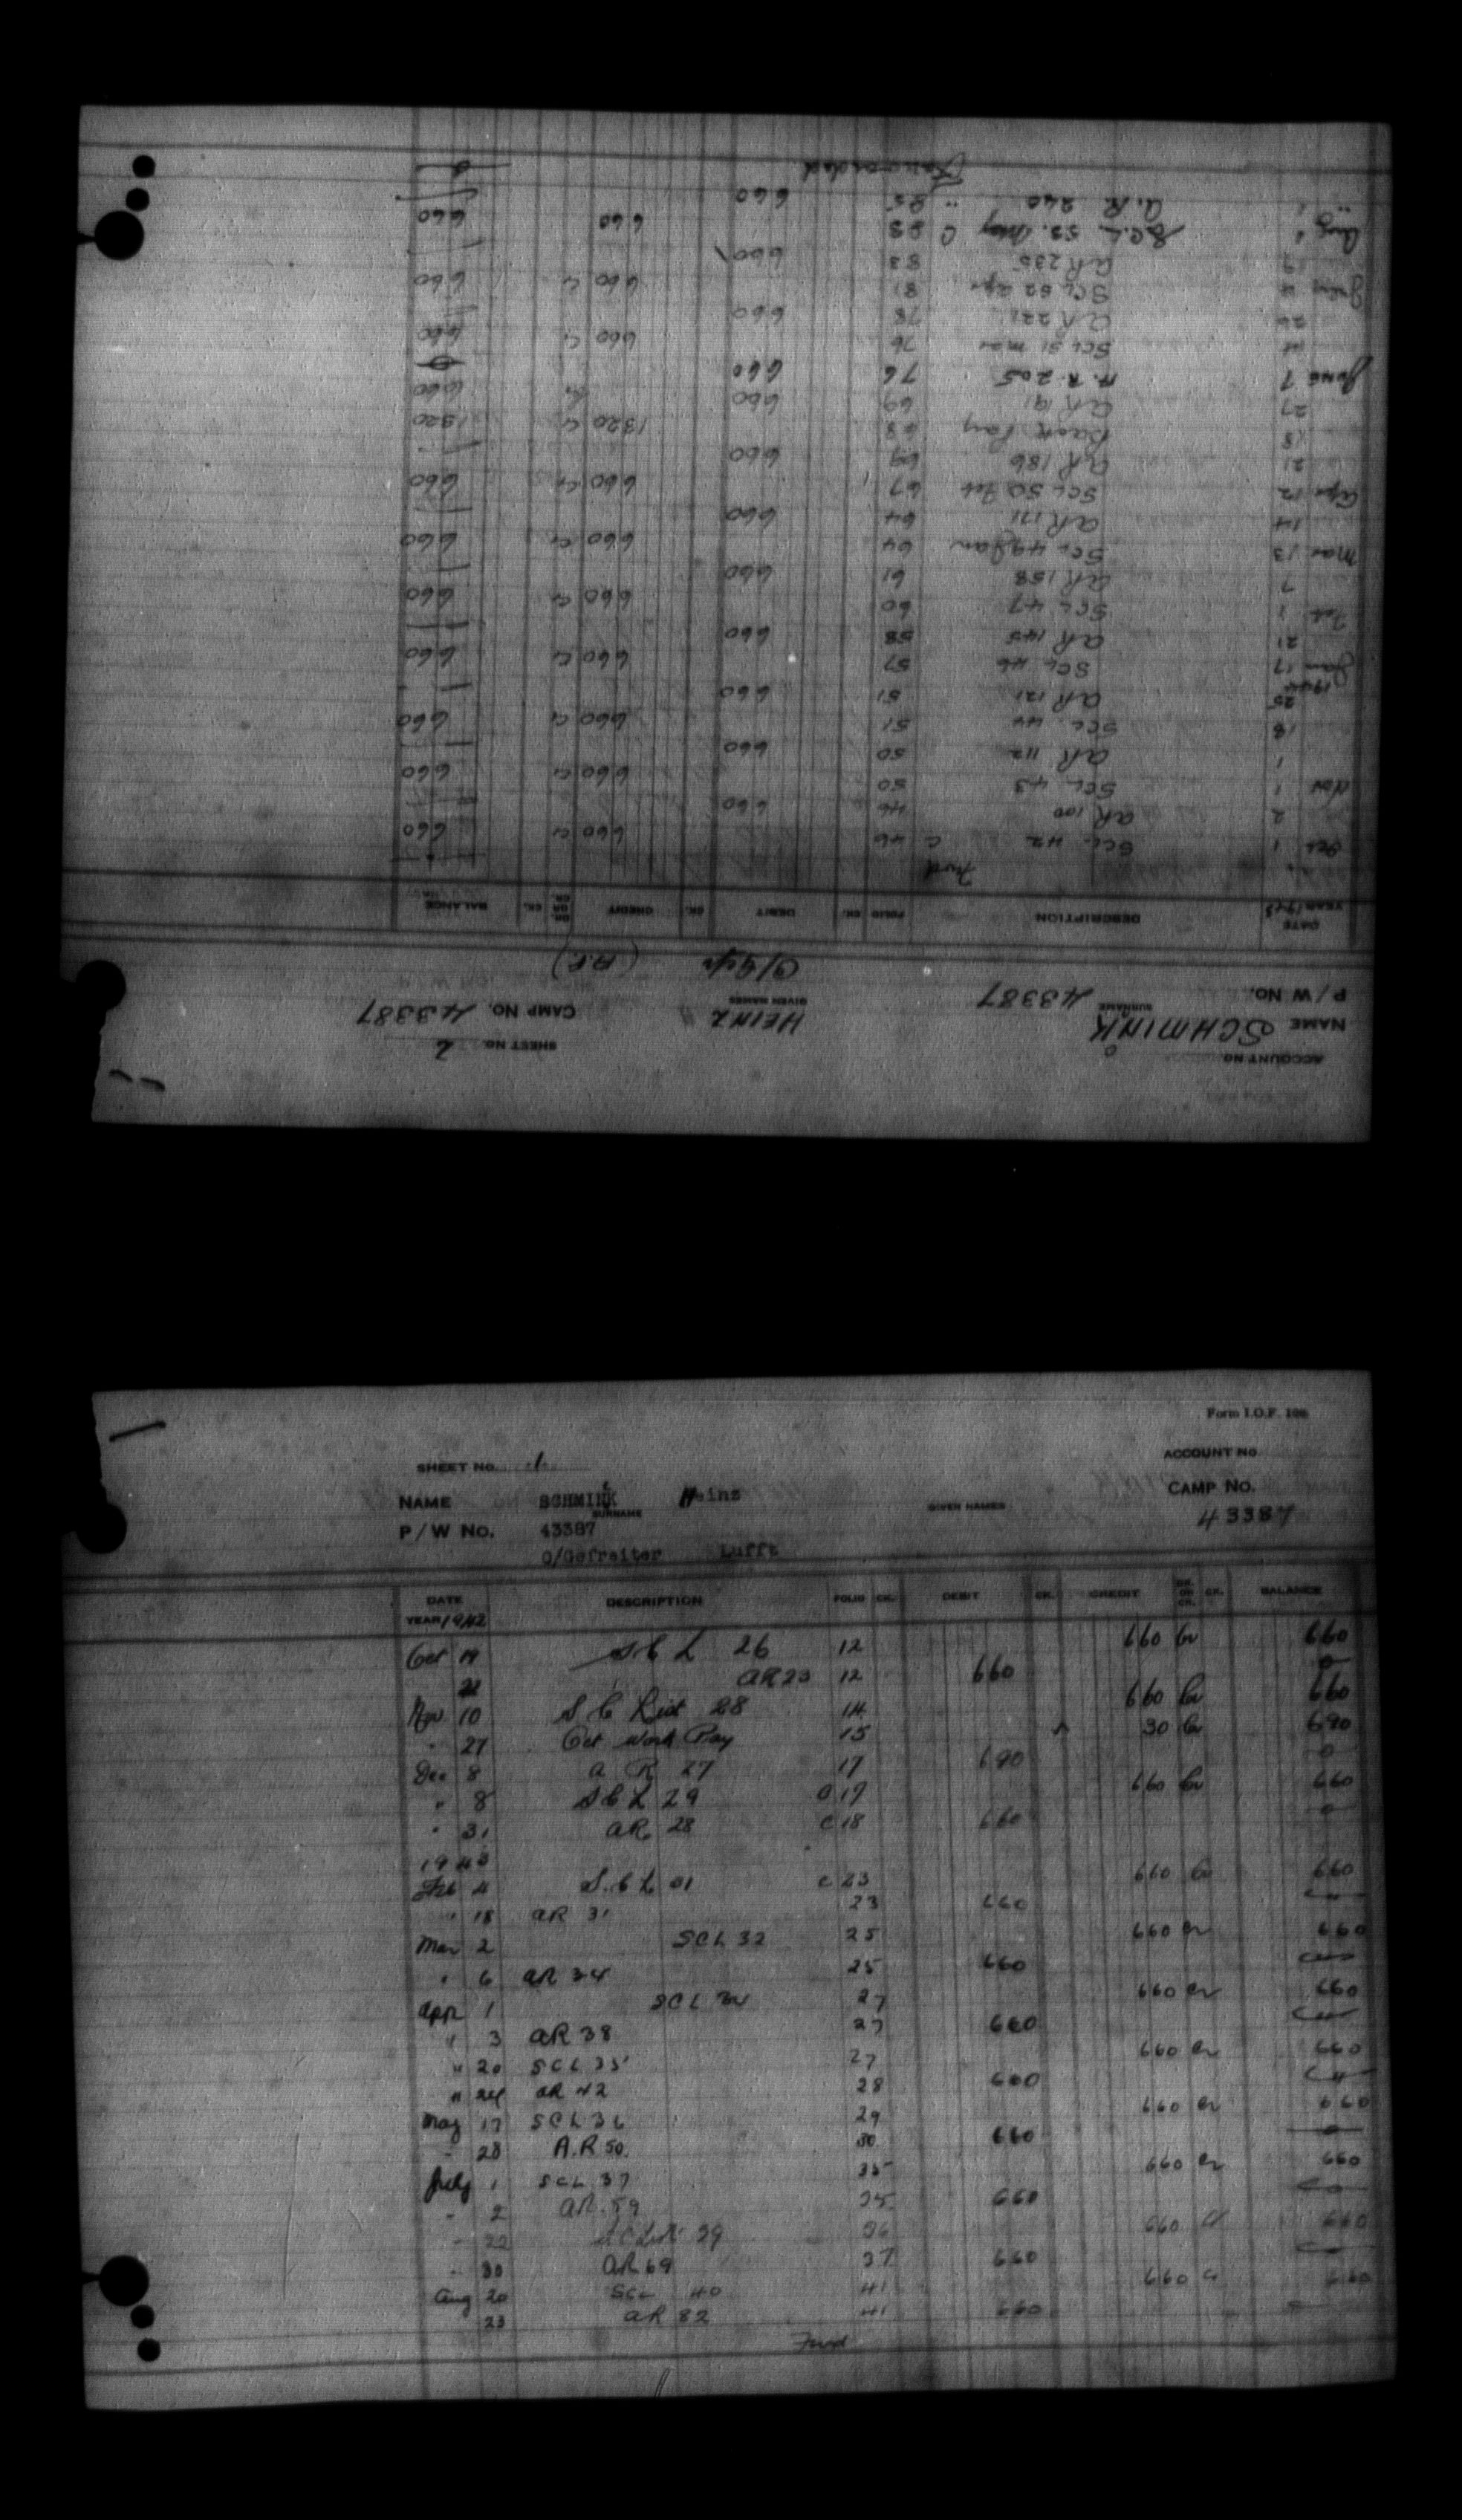 Forwarded
" " A. R. 240 " 85 660
Aug 1 S.C.L. 53. May C 85 660 660
19 AR 235 83 660
July 4 SCL 52 Apr 81 660 Cr 660
26 AR 221 78 660
14 SCL 51 Mar 76 660 Cr 660
June 7 A. R. 205 76 660 0
27 AR 191 69 660 Cr 660
18 Back Pay 68 1320 Cr 1320
21 AR 186 69 660
Apr 12 SCL 50 Feb 67 660 Cr 660
14 AR 171 64 660
Mar 13 SCL 49 Jan 64 660 Cr 660
7 AR 158 61 660
Feb 1 SCL 47 60 660 Cr 660
21 AR 145 58 660
Jan 17 SCL 46 57 660 Cr 660
1944
25 AR 121 51 660
18 SCL 44 51 660 Cr 660
1 AR 112 50 660
Nov 1 SCL 43 50 660 Cr 660
2 AR 100 46 660
Oct 1 SCL 42 C 46 660 Cr 660
Fwd
DATE YEAR 1943 DESCRIPTION FOLIO CK. DEBIT CK. CREDIT DR. OR CR. CK. BALANCE
O/Gefr (A.P.)
P/W NO. 43387 SURNAME GIVEN NAMES CAMP NO. 43387
NAME SCHMINK HEINZ
ACCOUNT NO SHEET NO. 2
Form I.O.F. 106
SHEET No. 1 ACCOUNT No
NAME SCHMINK Heinz CAMP No.
SURNAME GIVEN NAMES
P/W No. 43387 43387
O/Gefreiter Lufft
DATE DESCRIPTION FOLIO CK. DEBIT CK. CREDIT DR. OR CR. CK. BALANCE
YEAR 1942
Oct 19 S C L 26 12 660 Cr 660
21 AR 23 12 660 0
Nov 10 S C List 28 14 660 Cr 660
" 27 Oct Work Pay 15 30 Cr 690
Dec 8 A R 27 17 690 0
" 8 S C L 29 C 17 660 Cr 660
" 31 AR 28 C 18 660 0
1943
Feb 4 S. C L 31 C 23 660 Cr 660
" 18 AR 31 23 660
Mar 2 SCL 32 25 660 Cr 660
" 6 AR 34 25 660
Apr 1 SCL 27 660 Cr 660
" 3 AR 38 27 660
" 20 SCL 35 27 660 Cr 660
" 24 AR 42 28 660
May 17 SCL 36 29 660 Cr 660
" 28 A.R 50. 30 660 0
July 1 SCL 37 35 660 Cr 660
" 2 AR. 59 35 660 0
" 22 39 36 660 Cr 660
" 30 AR 69 37 660
Aug 20 SCL 40 41 660 Cr 660
23 AR 82 41 660
Fwd